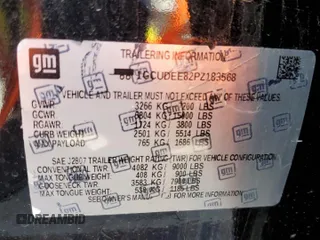 gm
TRAILERING INFORMATION
gm
1GCUDEE82PZ183588
VEHICLE AND TRAILER MUST NOT EXCEED ANY OF THESE VALUES
GVWR 3266 KG 7200 LBS
GCWR 6804 KG 15000 LBS
RGAWR 1724 KG 3800 LBS
CURB WEIGHT 2501 KG 5514 LBS
MAX PAYLOAD 765 KG 1686 LBS
SAE J2807 TRAILER HEIGHT RATING (TWR) FOR VEHICLE CONFIGURATION
CONVENTIONAL TWR 4082 KG 9000 LBS
MAX TONGUE WEIGHT 408 KG 900 LBS
GOOSENECK TWR 3583 KG LBS
MAX TONGUE WEIGHT KG LBS
SEE OWNER'S MANUAL
DREAMBID